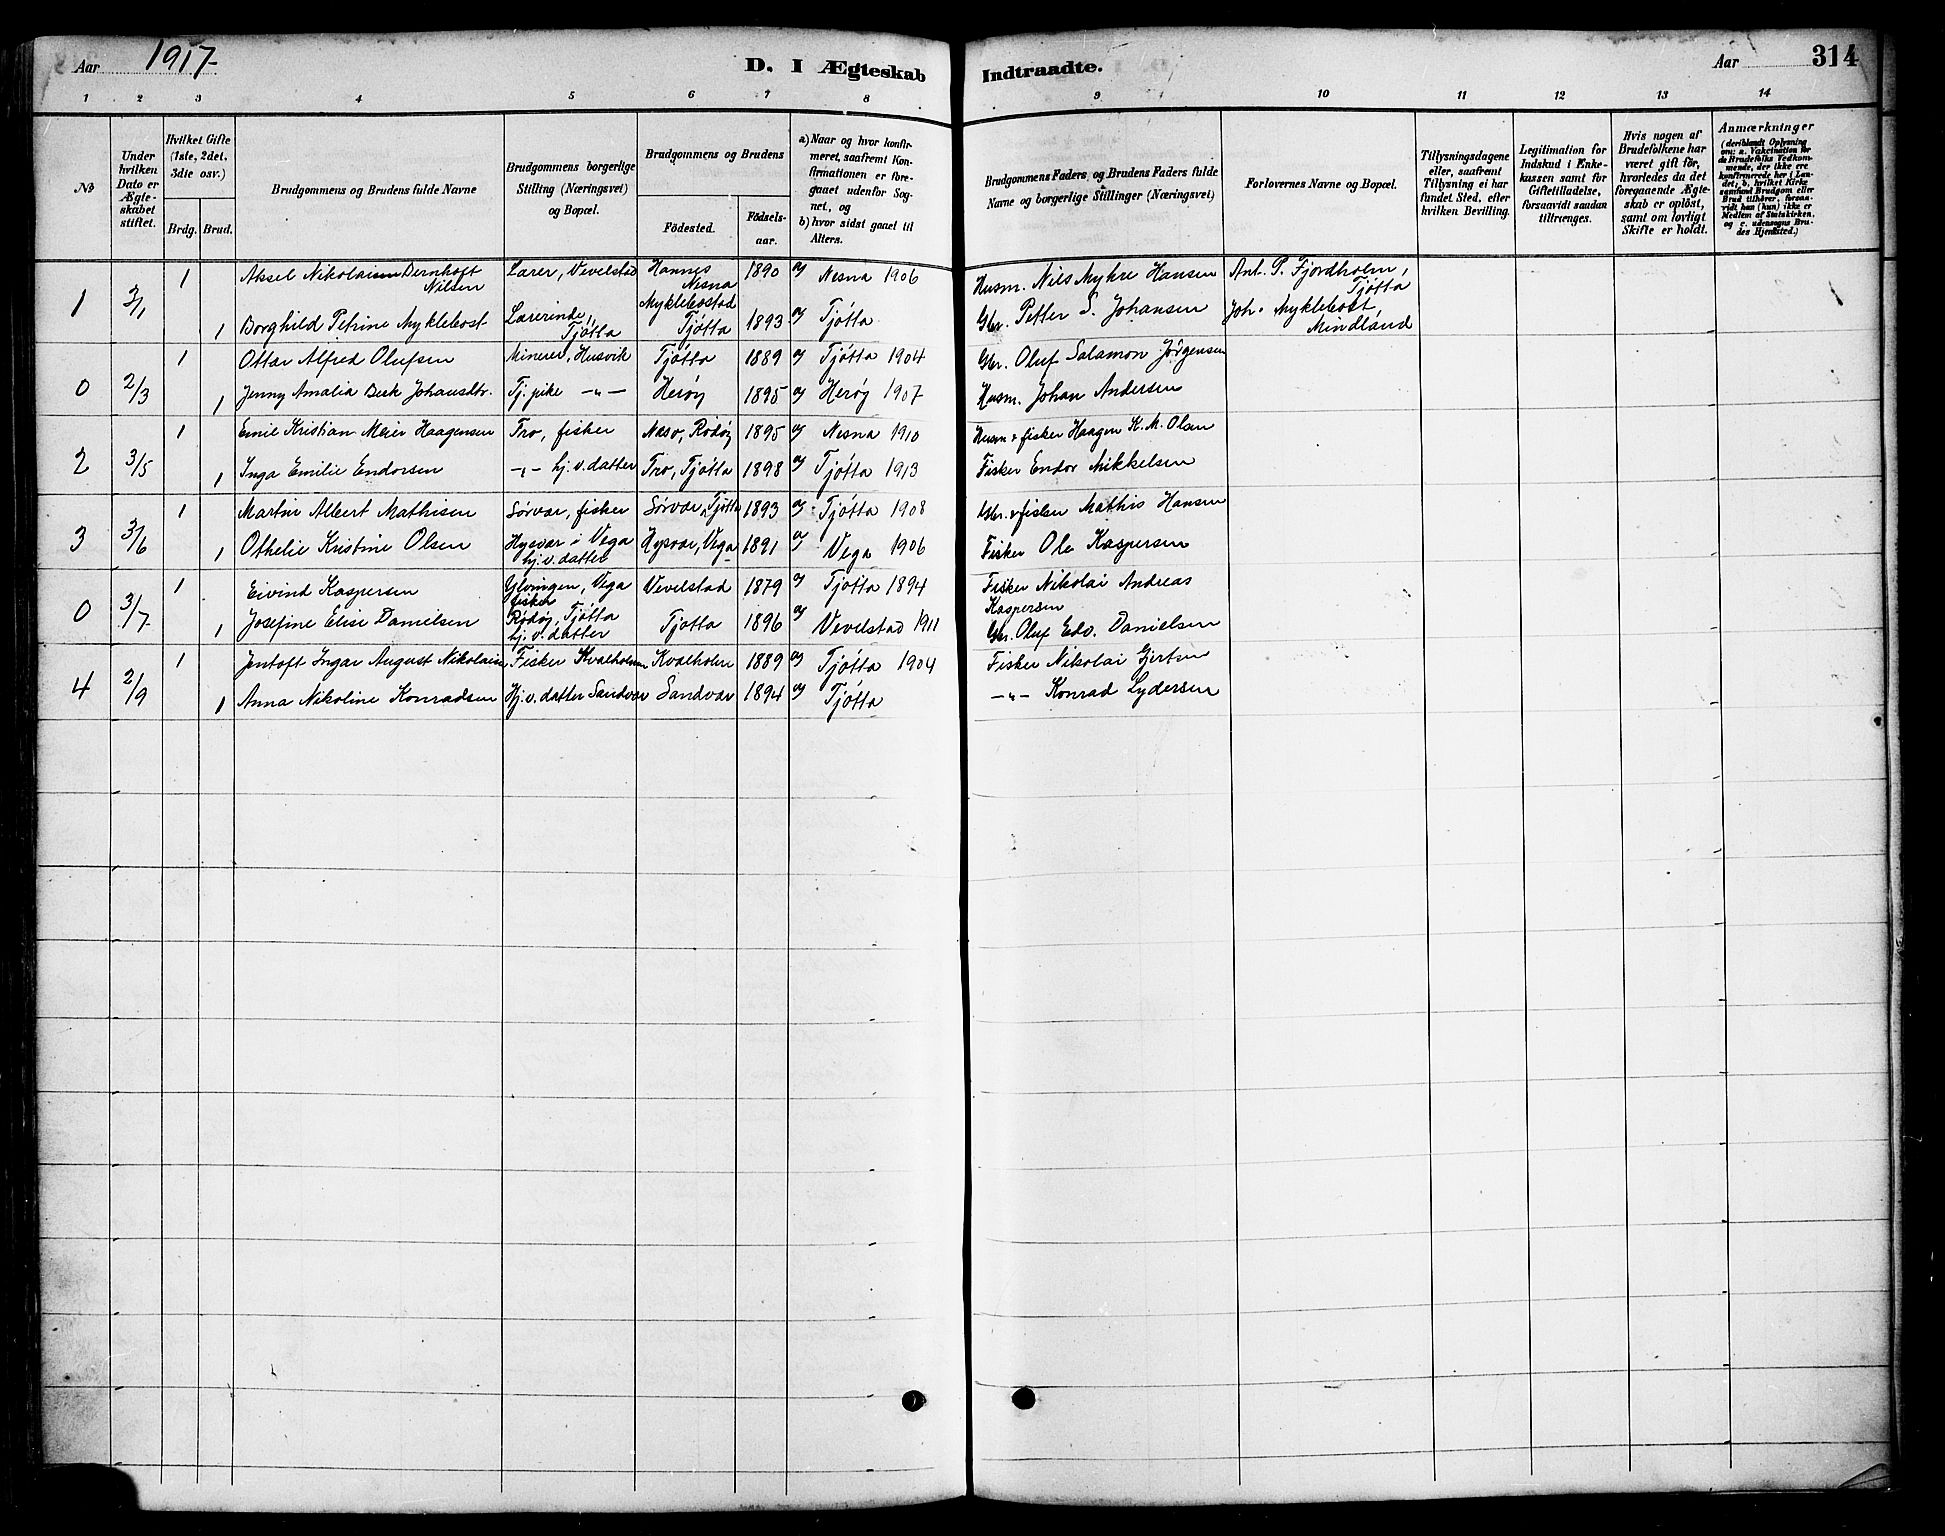 Aar 1917
D. I Ægteskab Indtraadte.
Aar 314
1 2 3 4 5 6 7 8 9 10 11 12 13 14
№
Under hvilken Dato er Ægteskabet stiftet.
Hvilket Gifte (1ste, 2det, 3die osv.)
Brdg. Brud.
Brudgommens og Brudens fulde Navne
Brudgommens borgerlige Stilling (Næringsvei) og Bopæl.
Brudgommens og Brudens
Födested.
Födselsaar.
a) Naar og hvor konfirmeret, saafremt Konfirmationen er foregaaet udenfor Sognet, og
b) hvor sidst gaaet til Alters.
Brudgommens Faders og Brudens Faders fulde Navne og borgerlige Stillinger (Næringsvei)
Forlovernes Navne og Bopæl.
Tillysningsdagene eller, saafremt Tillysning ei har fundet Sted, efter hvilken Bevilling.
Legitimation for Indskud i Enkekassen samt for Giftetilladelse, forsaavidt saadan tiltrænges.
Hvis nogen af Brudefolkene har været gift för, hvorledes da det foregaaende Ægteskab er oplöst, samt om lovligt Skifte er holdt.
Anmærkninger (deriblandt Oplysning om: a. Vakcination for de Brudefolks Vedkommende, der ikke ere konfirmerede her i Landet; b. hvilket Kirkesamfund Brudgom eller Brud tilhörer, forsaavidt han (hun) ikke er Medlem af Statskirken, og c. udensogns Brudes Hjemsted.)
1 3/1 1 Aksel Nikolai Bernhoft Nilsen Lærer, Vevelstad Hannes Nesna 1890 a) Nesna 1906 Husm. Nils Myhre Hansen Ant. P. Fjordholm, Tjøtta
1 Borghild Petrine Myklebost Lærerinde, Tjøtta Myklebostad Tjøtta 1893 a) Tjøtta Gbr. Petter S. Johansen Joh. Myklebost Mindland
0 2/3 1 Ottar Alfred Olufsen Minerer, Husvik Tjøtta 1889 a) Tjøtta 1904 Gbr. Oluf Salamon Jørgensen
1 Jenny Amalia Berk Johansdtr. Tj. pike -"- Herøy 1895 a) Herøy 1907 Husm. Johan Andersen
2 3/5 1 Emil Kristian Meier Haagensen Tro, fisker Næsø, Rødøy 1895 a) Nesna 1910 Husm & fisker Haagen K. M. Olsen
1 Inga Emilie Endorsen -"- hj. v. datter Tro, Tjøtta 1898 a) Tjøtta 1913 Fisker Endor Mikkelsen
3 3/6 1 Martin Albert Mathisen Sørvær, fisker Sørvær, Tjøtta 1893 a) Tjøtta 1908 Gbr. & fisker Mathis Hansen
1 Othelie Kristine Olsen Hysvær i Vega hj. v. datter Hysvær, Vega 1891 a) Vega 1906 Fisker Ole Kaspersen
0 3/7 1 Eivind Kaspersen Ylvingen, Vega fisker Vevelstad 1879 a) Tjøtta 1894 Fisker Nikolai Andreas Kaspersen
1 Josefine Elise Danielsen Rødøy, Tjøtta hj. v. datter Tjøtta 1896 a) Vevelstad 1911 Gbr. Oluf Edv. Danielsen
4 2/9 1 Jentoft Ingar August Nikolaisen Fisker Kvalholmen Kvalholm 1889 a) Tjøtta 1904 Fisker Nikolai Gjertsen
1 Anna Nikoline Konradsen Hj. v. datter Sandvær Sandvær 1894 a) Tjøtta -"- Konrad Lydersen